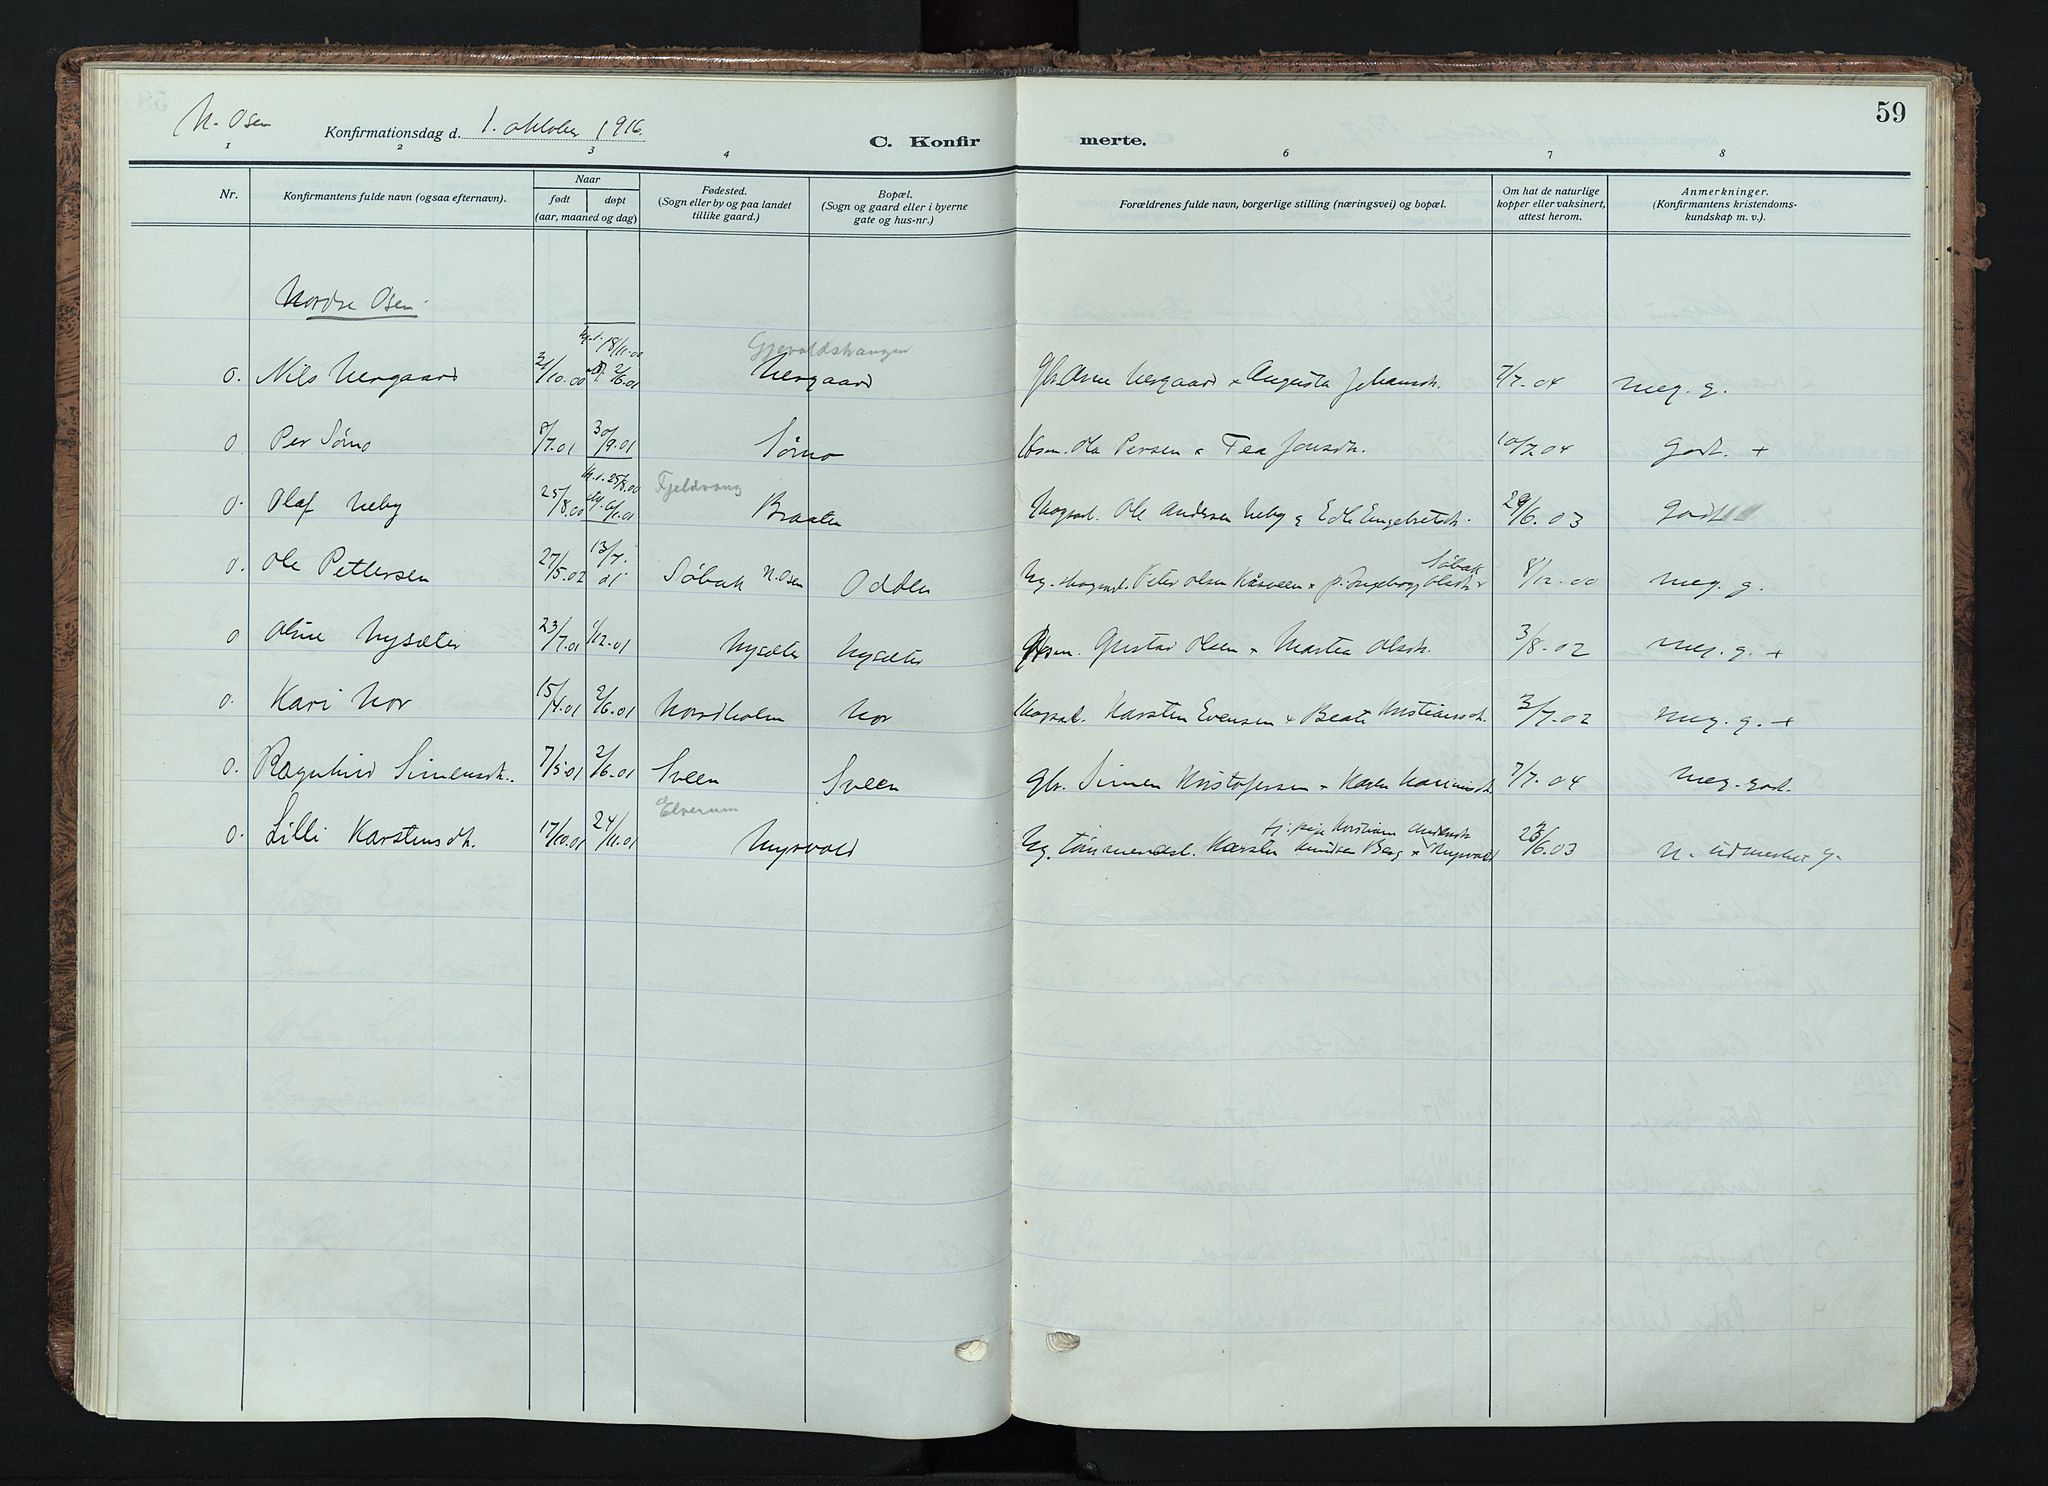 59
N. Osen Konfirmationsdag d. 1. oktober 1916. C. Konfir merte.
1 2 3 4 6 7 8
Nr. Konfirmantens fulde navn (ogsaa efternavn). Naar født døpt (aar, maaned og dag) Fødested. (Sogn eller by og paa landet tillike gaard.) Bopæl. (Sogn og gaard eller i byerne gate og hus-nr.) Forældrenes fulde navn, borgerlige stilling (næringsvei) og bopæl. Om hat de naturlige kopper eller vaksinert, attest herom. Anmerkninger. (Konfirmantens kristendoms-kundskap m. v.).
Nordre Osen
18/11.00 Gjevaldshaugen
0. Nils Nergaard /10.00 2/6.01 Nergaard Gbr. Arne Nergaard & Augusta Johansdt. 7/7.04 meg. g.
0 Per Sørmo 8/7.01 30/9.01 Sørmo Hsm. Ola Persen & Tea Jonsdt. 10/7.04 godt. +
25/8.00 Fjeldvang
0. Olaf Neby 25/8.00 6/1.01 Braaten Skogsarb. Ole Andersen Neby & Edle Engebretsdt. 29/6.03 godt
Søbak
0. Ole Pettersen 27/5.02 13/7. 01 Søbak N. Osen Odden Ug. skogsarb. Peter Olsen Kåsveen & p. Ingeborg Olsdt. 8/12.00 meg. g.
0 Oline Nysæter 23/7.01 1/12.01 Nysæter Nysæter Hsm. Gustav Olsen & Martea Olsdt. 3/8-02 meg. g. +
0. Kari Nor 15/4.01 2/6.01 Nordholm Nor Skogsarb. Karsten Evensen & Beate Kristiansdt. 3/7.02 meg. g. +
0. Ragnhild Simensdt. 7/5.01 2/6.01 Sveen Sveen gbr. Simen Kristofersen & Karen Karinusdt. 7/7.04 meg. godt.
Elverum tj. pige Kristiane Andersdt.
0. Lilli Karstensdt. 17/10.01 24/11.01 Nysvold Ug. tømmerarb. Karsten Knudsen Berg & Nysvold 23/6.03 N. udmerket g.